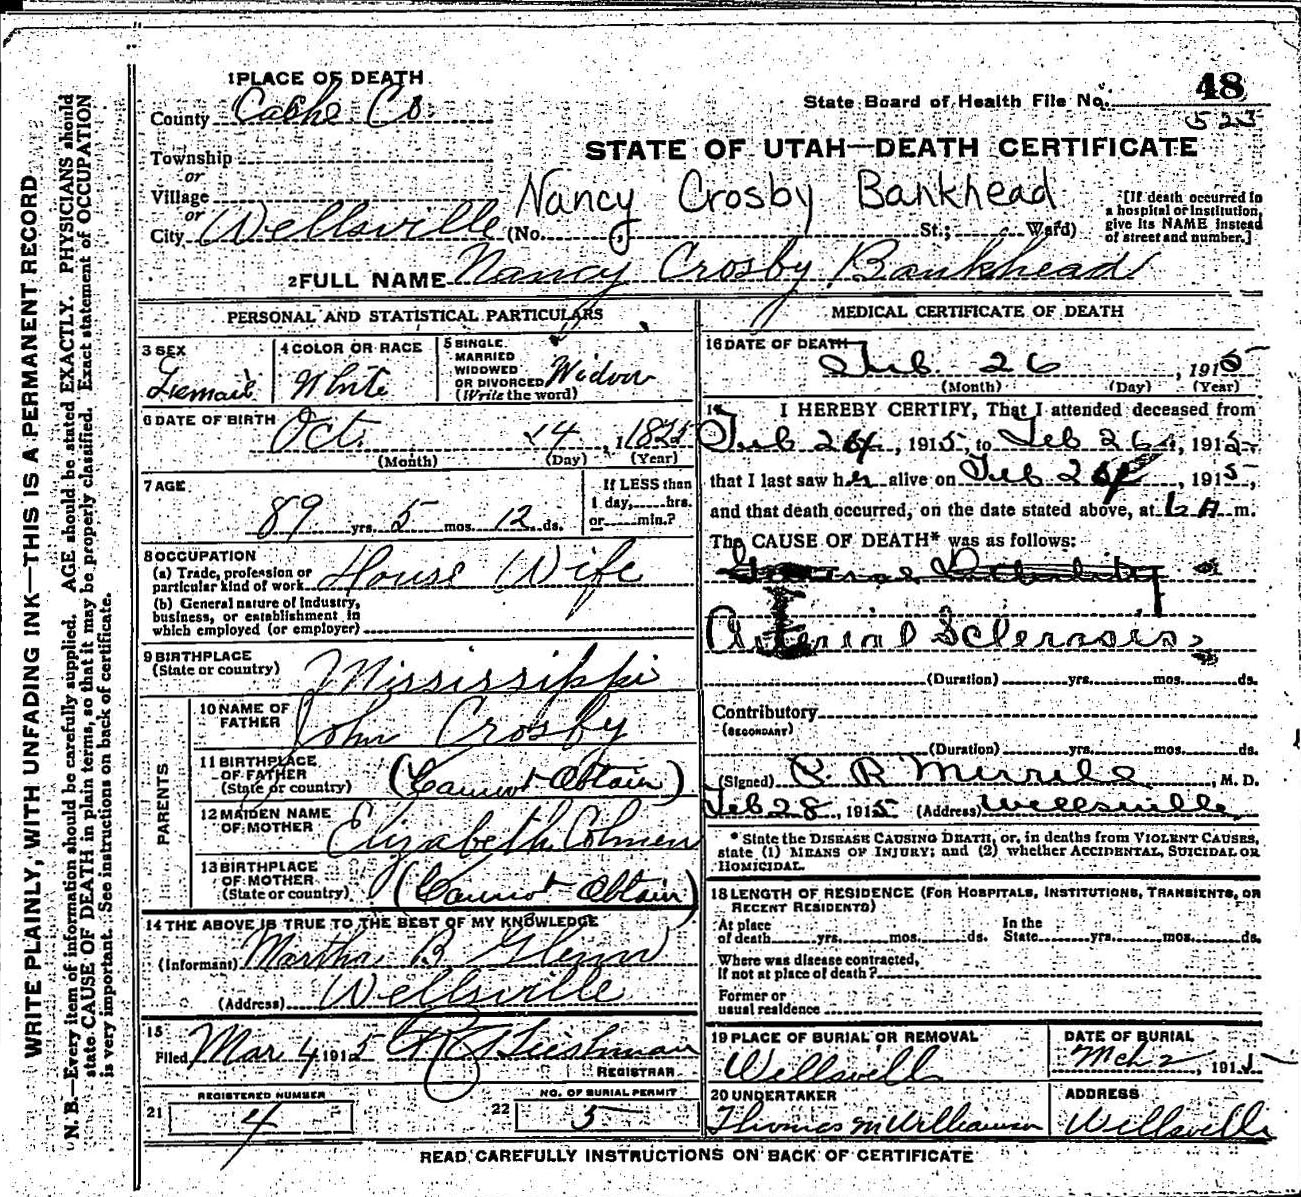 1 PLACE OF DEATH
County Cache Co.
State Board of Health File No. 48
523
STATE OF UTAH—DEATH CERTIFICATE
Township
or
Village
or
City Wellsville (No. St.; Ward)
Nancy Crosby Bankhead
[If death occurred in a hospital or institution, give its NAME instead of street and number.]
2 FULL NAME Nancy Crosby Bankhead
PERSONAL AND STATISTICAL PARTICULARS
3 SEX Femail
4 COLOR OR RACE White
5 SINGLE, MARRIED WIDOWED OR DIVORCED (Write the word) Widow
6 DATE OF BIRTH Oct. 14, 1825
(Month) (Day) (Year)
7 AGE 89 yrs. 5 mos. 12 ds.
If LESS than 1 day, hrs. or min.?
8 OCCUPATION
(a) Trade, profession or particular kind of work House Wife
(b) General nature of industry, business, or establishment in which employed (or employer)
9 BIRTHPLACE (State or country) Mississippi
PARENTS
10 NAME OF FATHER John Crosby
11 BIRTHPLACE OF FATHER (State or country) (Cannot Obtain)
12 MAIDEN NAME OF MOTHER Elizabeth
13 BIRTHPLACE OF MOTHER (State or country) (Cannot Obtain)
14 THE ABOVE IS TRUE TO THE BEST OF MY KNOWLEDGE
(Informant) Martha B Glenn
(Address) Wellsville
15
Filed Mar 4, 1915 Leishman
REGISTRAR
21 REGISTERED NUMBER 4
22 NO. OF BURIAL PERMIT 5
MEDICAL CERTIFICATE OF DEATH
16 DATE OF DEATH Feb 26, 1915
(Month) (Day) (Year)
17 I HEREBY CERTIFY, That I attended deceased from
Feb 24, 1915, to Feb 26, 1915,
that I last saw her alive on Feb, 1915,
and that death occurred, on the date stated above, at 6 A m.
The CAUSE OF DEATH* was as follows:
Arterial Sclerosis
(Duration) yrs. mos. ds.
Contributory
(SECONDARY)
(Duration) yrs. mos. ds.
(Signed) Merrill, M. D.
Feb 28, 1915 (Address) Wellsville
* State the DISEASE CAUSING DEATH, or, in deaths from VIOLENT CAUSES,
state (1) MEANS OF INJURY; and (2) whether ACCIDENTAL, SUICIDAL OR
HOMICIDAL.
18 LENGTH OF RESIDENCE (FOR HOSPITALS, INSTITUTIONS, TRANSIENTS, OR
RECENT RESIDENTS)
At place of death yrs. mos. ds. In the State yrs. mos. ds.
Where was disease contracted,
If not at place of death?
Former or
usual residence
19 PLACE OF BURIAL OR REMOVAL Wellsvill
DATE OF BURIAL Mch 2, 1915
20 UNDERTAKER Thomas M Williamson
ADDRESS Wellsvill
READ CAREFULLY INSTRUCTIONS ON BACK OF CERTIFICATE
WRITE PLAINLY, WITH UNFADING INK—THIS IS A PERMANENT RECORD
N. B.—Every item of information should be carefully supplied. AGE should be stated EXACTLY. PHYSICIANS should
state CAUSE OF DEATH in plain terms, so that it may be properly classified. Exact statement of OCCUPATION
is very important. See instructions on back of certificate.